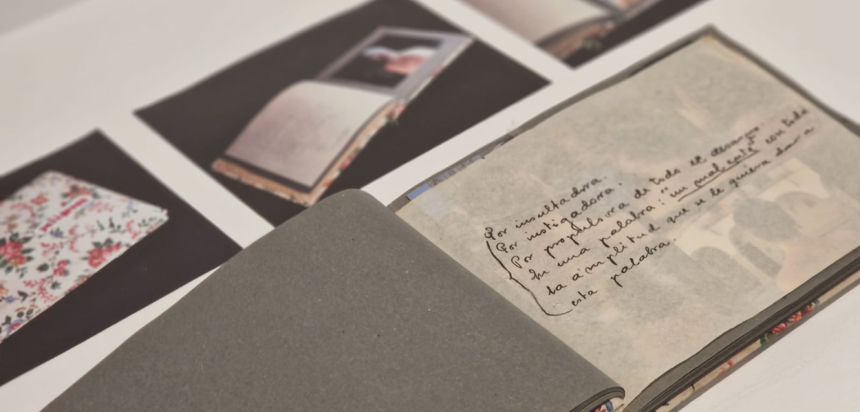 Por insultadora.
Por instigadora.
Por propulsora de todo el
En una palabra: "un mal con toda
la amplitud que se le quiera dar a
esta palabra.